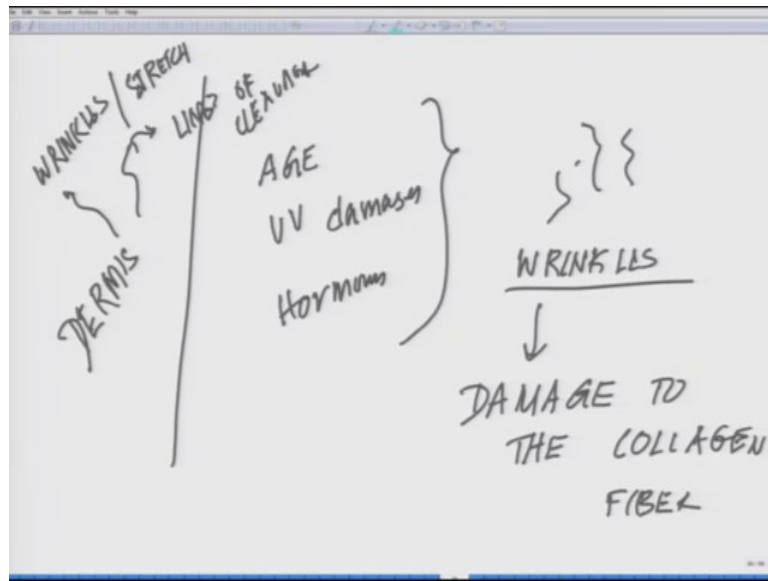 WRINKLES / STRETCH
LINES OF
DERMIS
AGE
UV damages
Hormones
WRINKLES
DAMAGE TO
THE COLLAGEN
FIBER